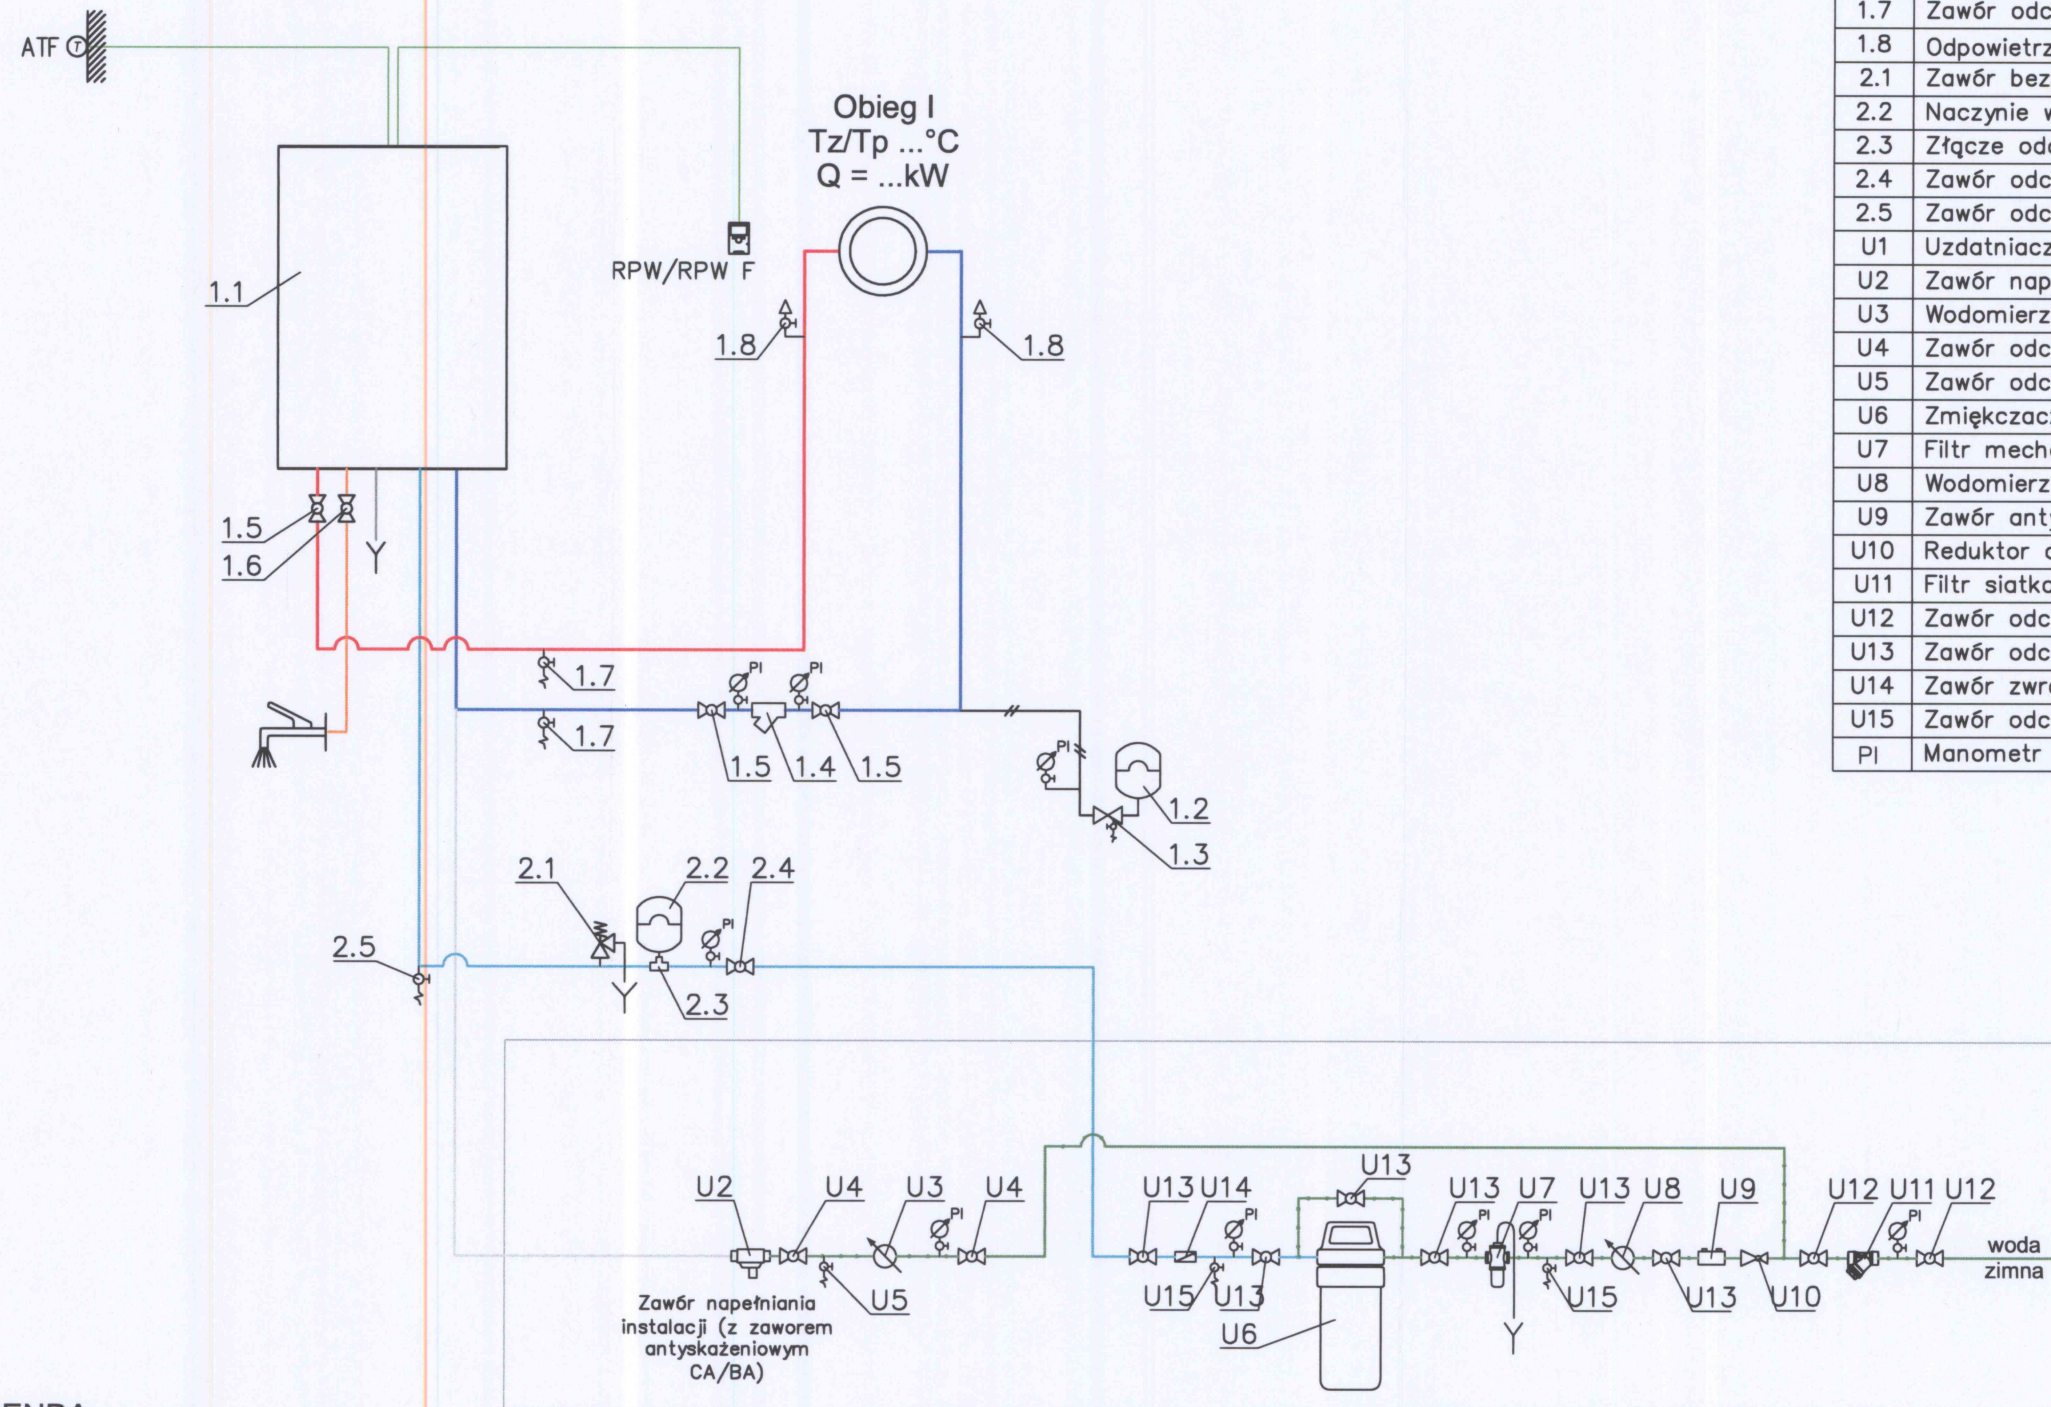 ATF T
Obieg I
Tz/Tp ...°C
Q = ...kW
RPW/RPW F
1.1
1.8
1.8
1.5
1.6
1.7
PI
PI
1.7
1.5
1.4
1.5
PI
1.2
1.3
2.1
2.2
2.4
PI
2.5
2.3
U2
U4
U3
PI
U4
U5
Zawór napełniania
instalacji (z zaworem
antyskażeniowym
CA/BA)
U13
U14
PI
U13
U13
PI
U7
PI
U13
U8
U9
U12
U11
PI
U12
woda
zimna
U15
U13
U6
U15
U13
U10
1.7 Zawór odc
1.8 Odpowietrz
2.1 Zawór bez
2.2 Naczynie
2.3 Złącze
2.4 Zawór odc
2.5 Zawór odc
U1 Uzdatniacz
U2 Zawór nap
U3 Wodomierz
U4 Zawór odc
U5 Zawór odc
U6 Zmiękczac
U7 Filtr mech
U8 Wodomierz
U9 Zawór ant
U10 Reduktor
U11 Filtr siatk
U12 Zawór odc
U13 Zawór odc
U14 Zawór zwr
U15 Zawór odc
PI Manometr